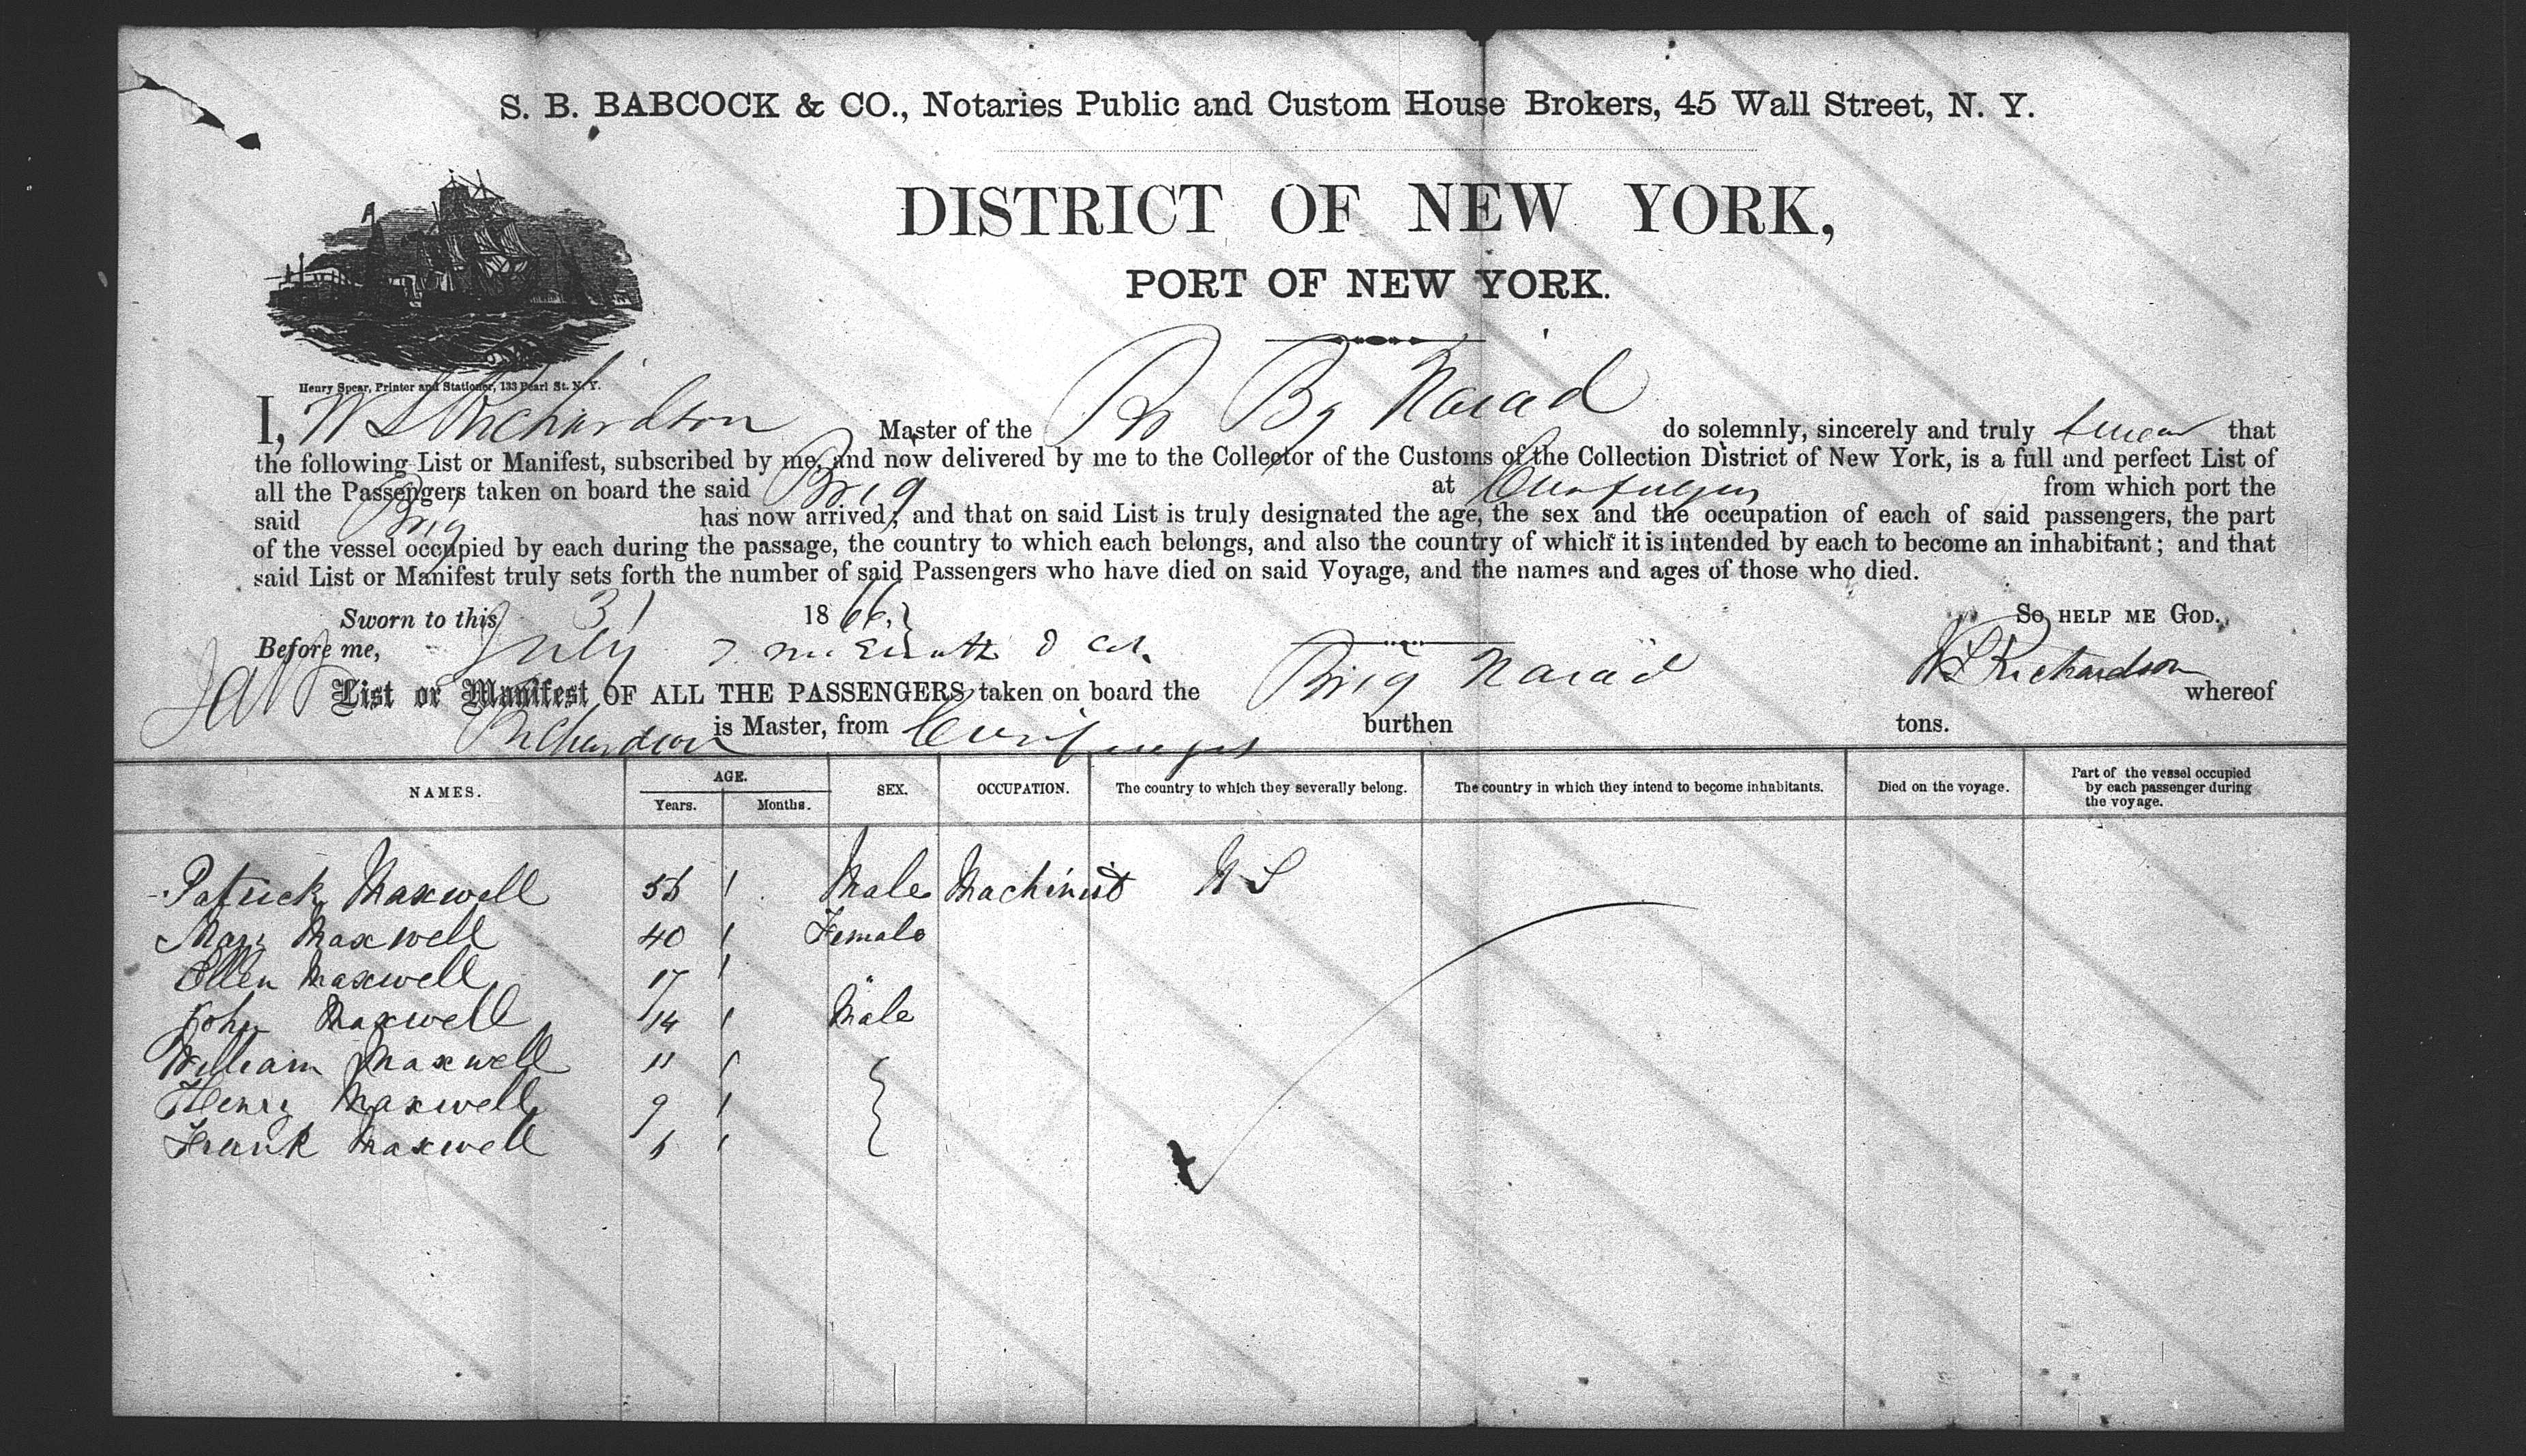 S. B. BABCOCK & CO., Notaries Public and Custom House Brokers, 45 Wall Street, N. Y.
DISTRICT OF NEW YORK,
PORT OF NEW YORK.
Henry Spear, Printer and Stationer, 133 Pearl St. N. Y.
I, W L Richardson Master of the Br Bg Naiad do solemnly, sincerely and truly swear that
the following List or Manifest, subscribed by me, and now delivered by me to the Collector of the Customs of the Collection District of New York, is a full and perfect List of
all the Passengers taken on board the said Brig at Cienfuegos from which port the
said Brig has now arrived; and that on said List is truly designated the age, the sex and the occupation of each of said passengers, the part
of the vessel occupied by each during the passage, the country to which each belongs, and also the country of which it is intended by each to become an inhabitant; and that
said List or Manifest truly sets forth the number of said Passengers who have died on said Voyage, and the names and ages of those who died.
Sworn to this 31 1866. So HELP ME GOD.
Before me, July W L Richardson
List or Manifest OF ALL THE PASSENGERS taken on board the Brig Naiad whereof
Richardson is Master, from Cienfuegos burthen tons.
NAMES. AGE. Years. Months. SEX. OCCUPATION. The country to which they severally belong. The country in which they intend to become inhabitants. Died on the voyage. Part of the vessel occupied by each passenger during the voyage.
Patrick Maxwell Male Machinist
Mary Maxwell 40 Female
Ellen Maxwell 17 "
John Maxwell 14 Male
William Maxwell 11
Henry Maxwell 9
Frank Maxwell